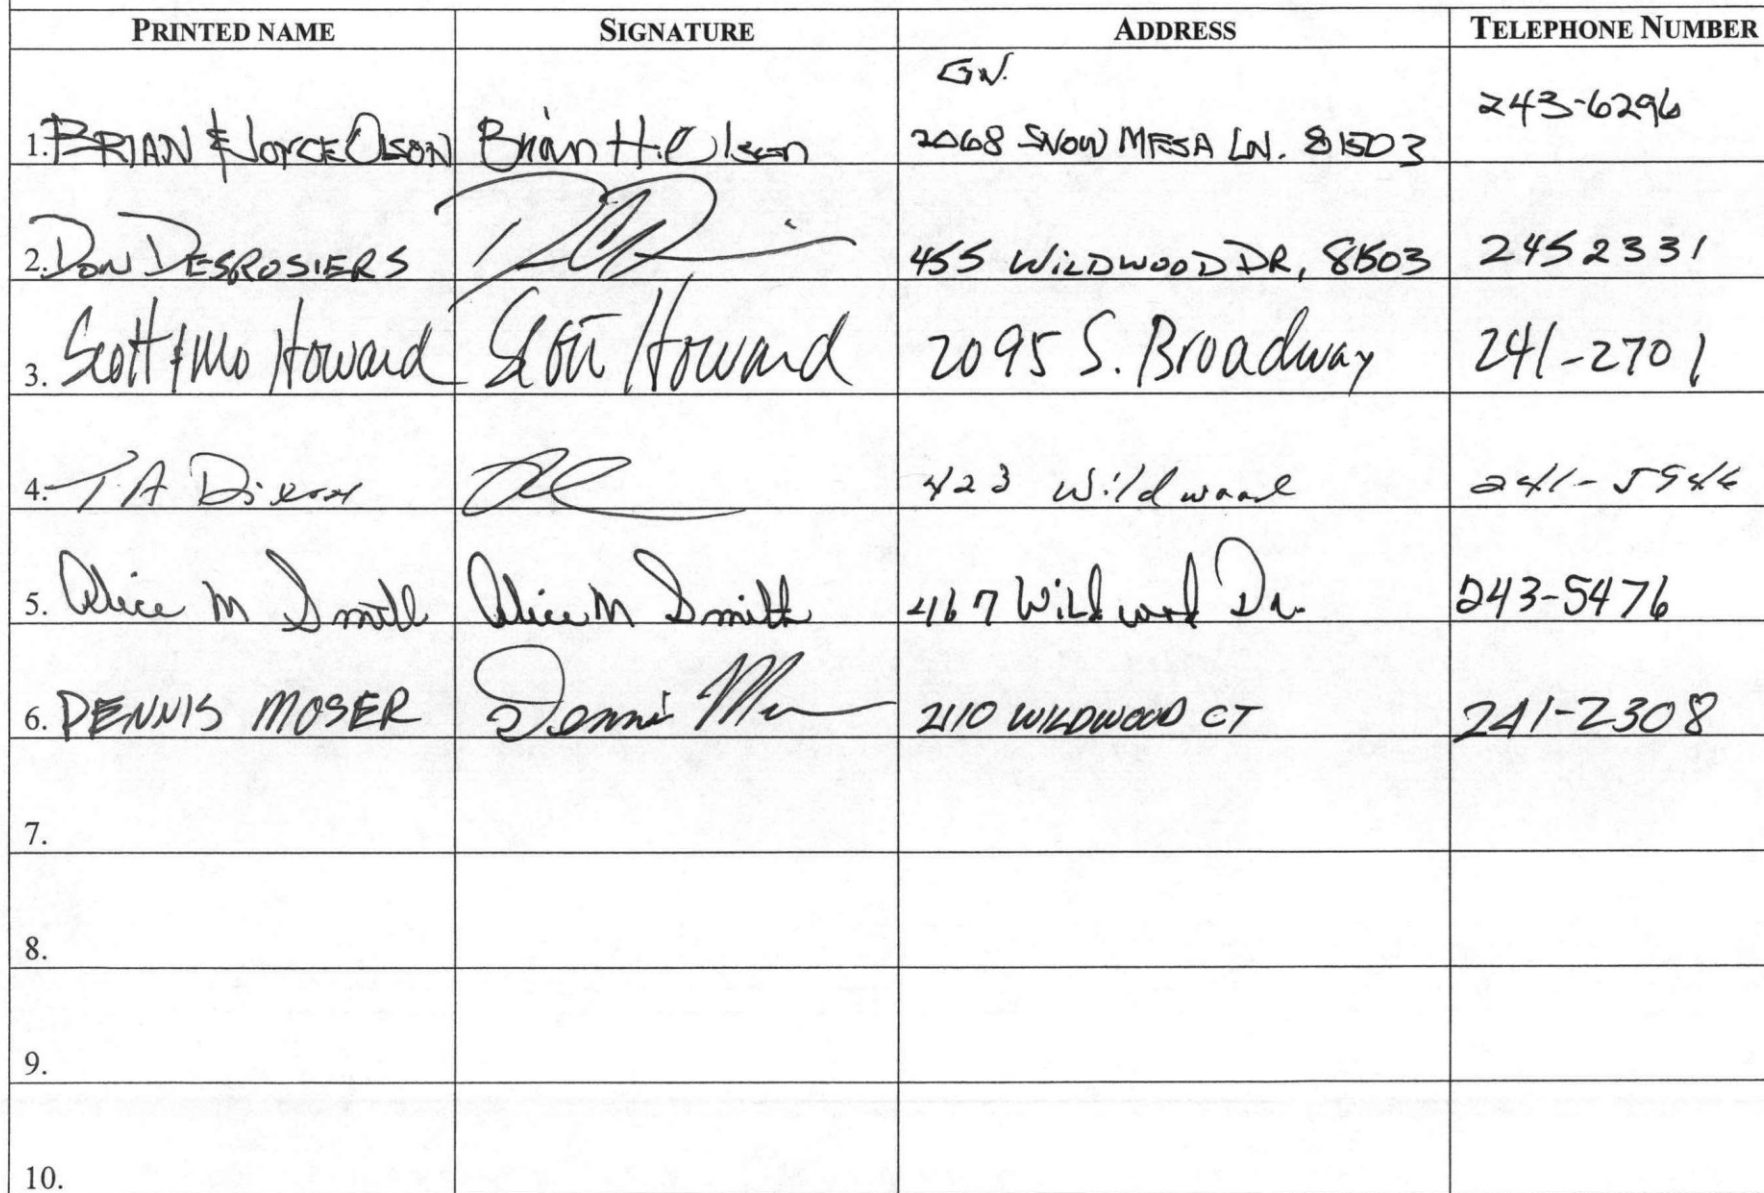 PRINTED NAME SIGNATURE ADDRESS TELEPHONE NUMBER
G.V.
1. BRIAN & JOYCE OLSON Brian H. Olson 2068 SNOW MESA LN. 81503 243-6296
2. DON DESROSIERS 455 WILDWOOD DR, 81503 2452331
3. Scott & Mo Howard Scott Howard 2095 S. Broadway 241-2701
4. T.A Dixon 423 Wildwood 241-5946
5. Alice M Smith Alice M Smith 467 Wildwood Dr. 243-5476
6. DENNIS MOSER Dennis 2110 WILDWOOD CT 241-2308
7.
8.
9.
10.